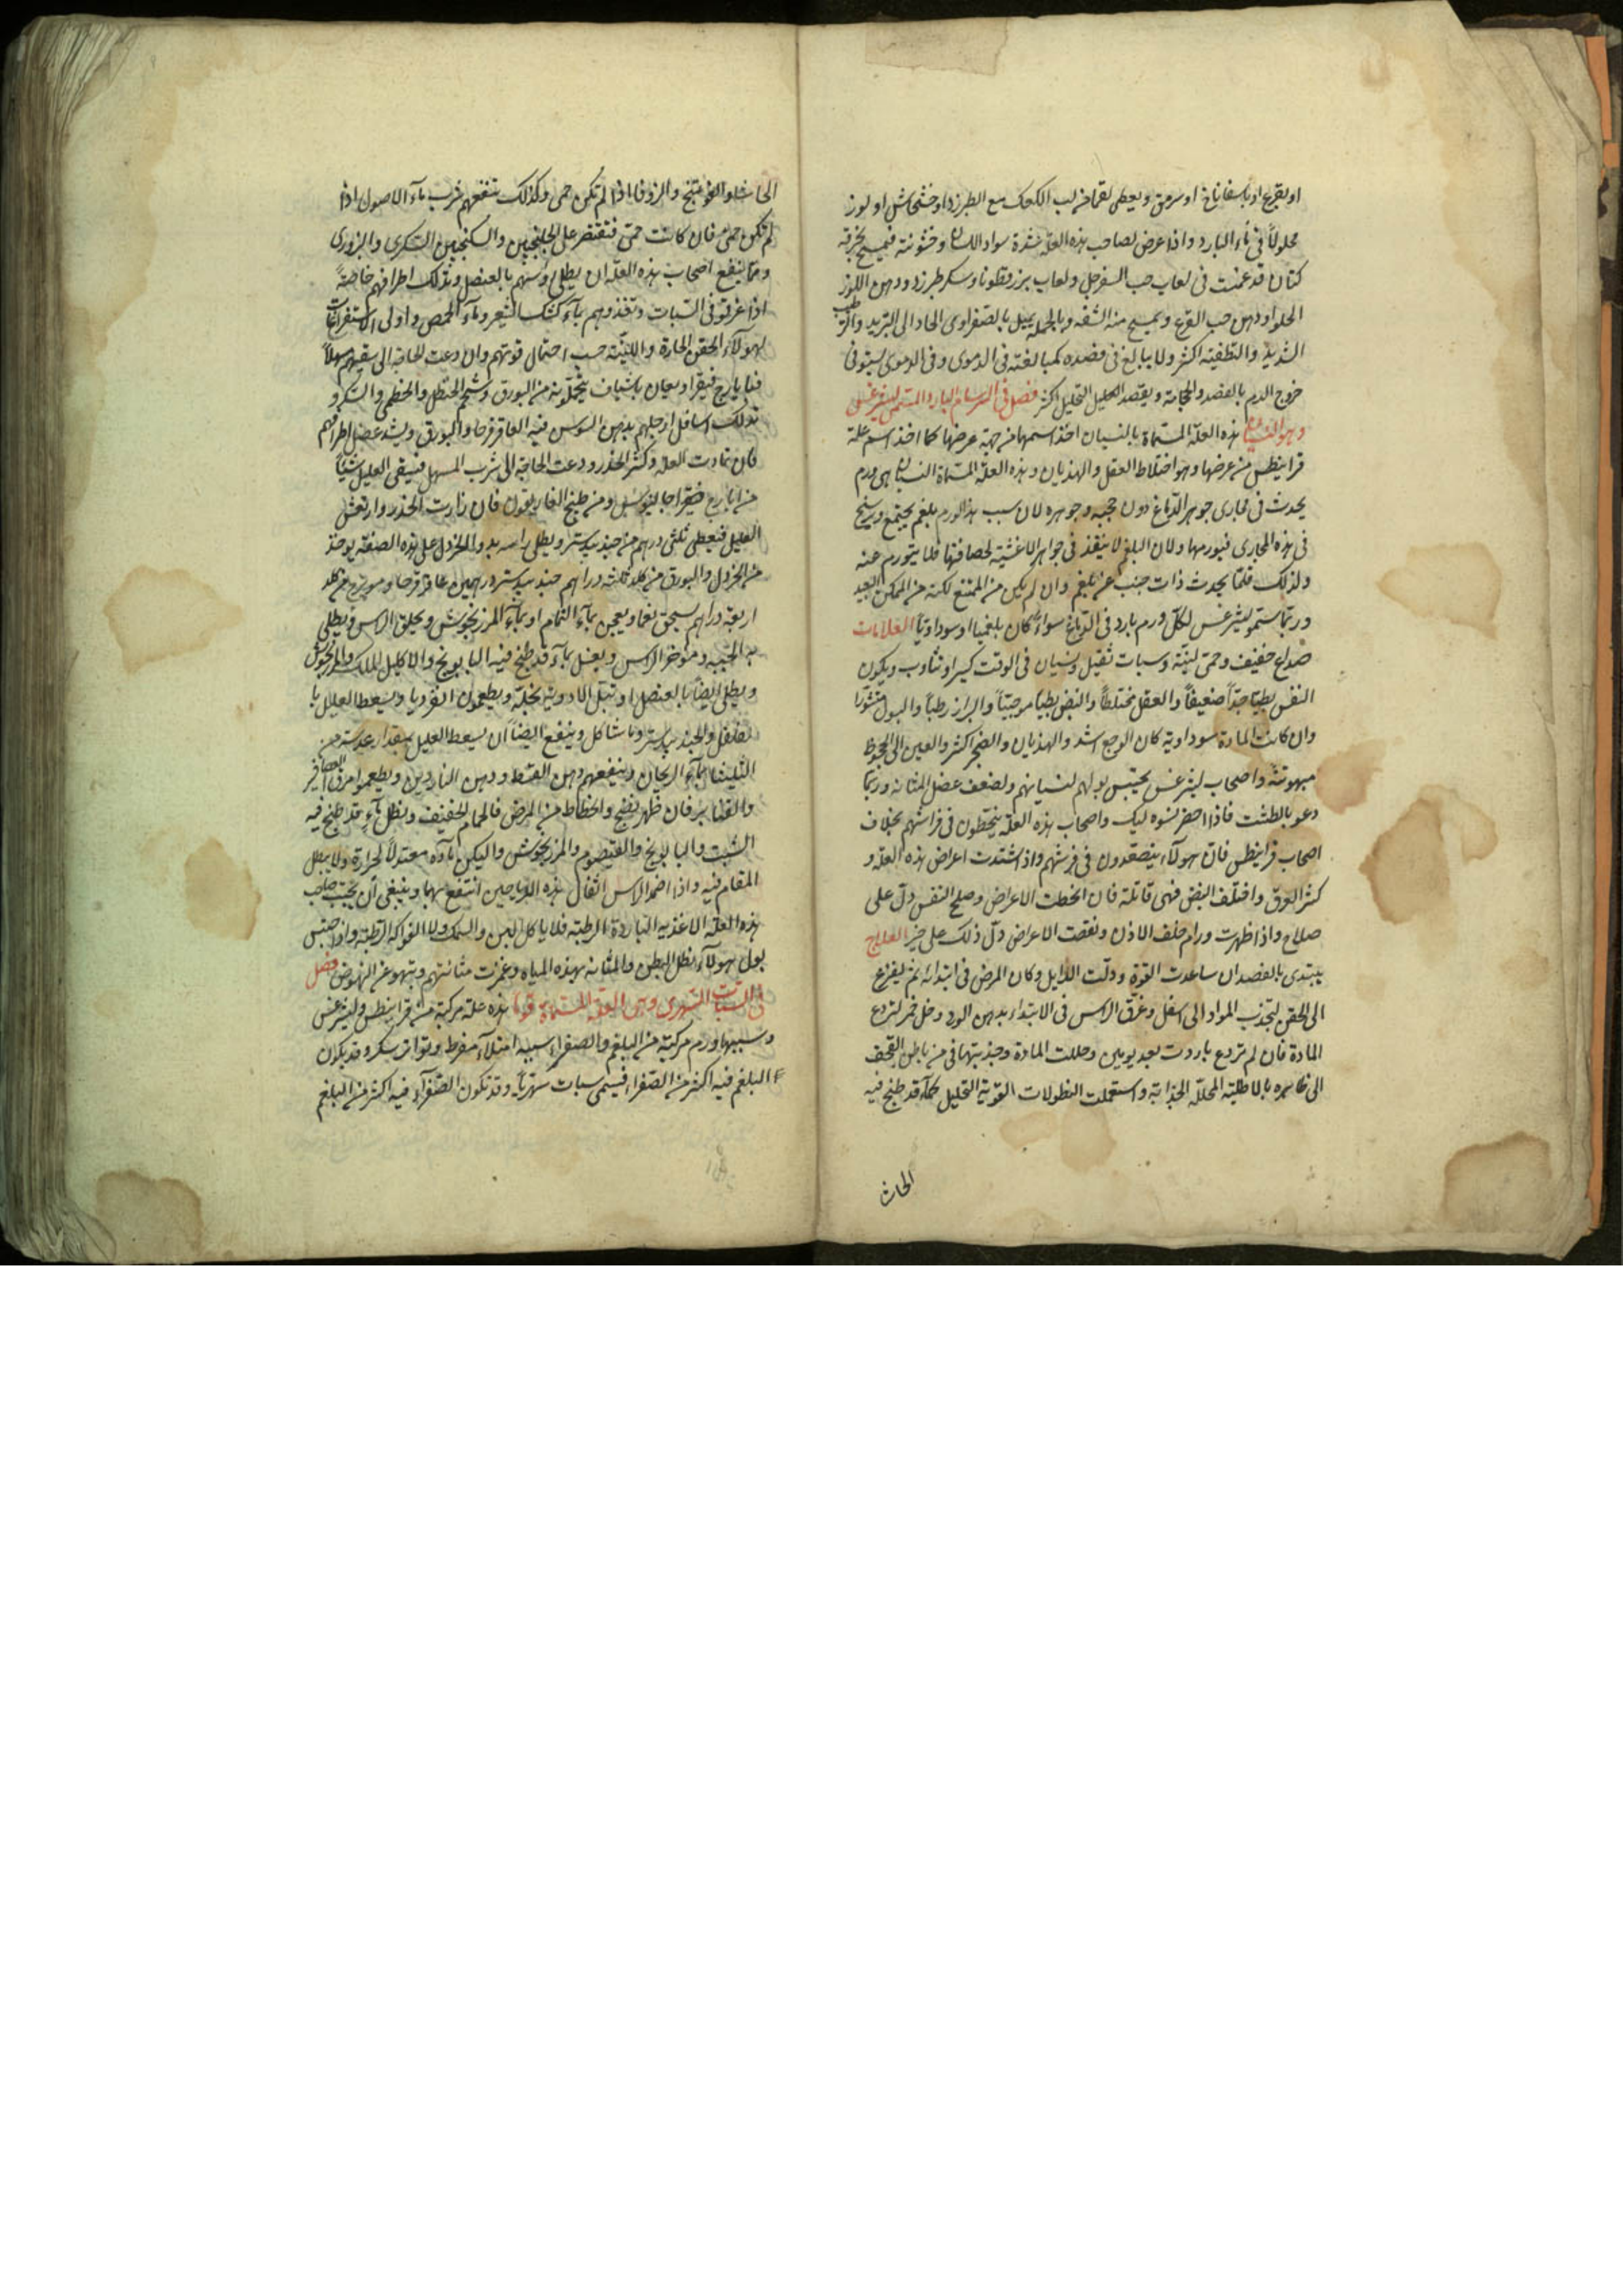 او بقرع او باسفاناخ او سرمق ويعطى لقما من لب الكعك مع الطبرزد او خشخاش او لوز
محلولاً فى ماء البارد واذا عرض لصاحب هذه العلة شدة سواد اللسان وخشونته فيمسح بخرقة
كتان قد غمست فى لعاب حب السفرجل ولعاب بزر قطونا وسكر طبرزد ودهن اللوز
الحلو او دهن حب القرع ويمسح منه الشفة وبالجملة يميل بالصفراوى الحاد الى التبريد والترطيب
الشديد والتطفية اكثر ولا يبالغ فى فصده كمبالغته فى الدموى وفى الدموى يستوفى
خروج الدم بالفصد والحجامة ويقصد التحليل اكثر فصل فى السرسام البارد المسمى ليثرغس
وهو النسيان هذه العلة المسماة بالنسيان اخذ اسمها من جهة عرضها كما اخذ اسم علة
قرانيطس من عرضها وهو اختلاط العقل والهذيان وهذه العلة المسماة النسيان هى ورم
يحدث فى مجارى جوهر الدماغ دون حجبه وجوهره لان سبب هذا الورم بلغم يجتمع ويرسخ
فى هذه المجارى فيورمها ولان البلغم لا ينفذ فى جواهر الاغشية لصافتها فلا يتورم عنه
ولذلك قلما يحدث ذات جنب عن بلغم وان لم يكن من الممتنع لكنه من الممكن البعيد
وربما ستمو ليثرغس لكل ورم بارد فى الدماغ سواء كان بلغميا او سوداويا العلامات
صداع خفيف وحمى لينة وسبات ثقيل ونسيان فى الوقت كسرا وتثاوب ويكون
النفس بطيا جدا ضعيفا والعقل مختلطا والنبض بطيا موجيا والبراز رطبا والبول متثورا
وان كانت المادة سوداوية كان الوجع اشد والهذيان والضجر اكثر والعين الى الجحوظ
مبهوتة واصحاب ليثرغس يحتبس بولهم لنسيانهم ولضعف عضل المثانة وربما
دعو بالطشت فاذا احضر نسوه ليك واصحاب هذه العلة ينحطون فى فراشهم بخلاف
اصحاب قرانيطس فان هولاء يتصعدون فى فرشهم واذا اشتدت اعراض هذه العلة و
كثر العرق واختلف النبض فهى قاتلة فان انحطت الاعراض وصلح النفس دل على
صلاح واذا ظهرت ورام خلف الاذن ونقصت الاعراض دل ذلك على خير العلاج
يبتدى بالفصد ان ساعدت القوة ودلت الدلايل وكان المرض فى ابتدائه ثم ليفزع
الى الحقن لتجذب المواد الى اسفل وغرق الراس فى الابتداء بدهن الورد وخل خمر لتردع
المادة فان لم تردع باردت بعد يومين وحللت المادة وجذبتها فى من باطن القحف
الى ظاهره بالاطلية المحللة الجذابة واستعملت النطولات القوية التحليل كماء قد طبخ فيه
الحاش
الحاشا والفوتنج والزوفا اذا لم تكن حمى وكذلك تنفعهم شرب ماء الاصول اذا
لم تكن حمى فان كانت حمى فتقتصر على الجلنجبين والسكنجبين السكرى والبزورى
ومما ينفع اصحاب هذه العلة ان يطلى روسهم بالعنصل وتدلك اطرافهم خاصة
اذا غرقو فى السبات وتغذوهم بماء كشك الشعير وماء الحمص واولى الاستفراغات
لهولاء الحقن الحارة واللينة حسب احتمال قوتهم وان دعت الحاجة الى سقيهم مسهلا
فبايارج فيقرا ويعان باشياف يتحملونه من البورق وشحم الحنظل والخطمى والسكر و
تدلك اسافل ارجلهم بدهن السوسن فيه العاقرقرحا والبورق ويشد عضل اطرافهم
فان تمادت العلة وكثر الخدر ودعت الحاجة الى شرب المسهل فيسقى العليل شيأ
من ايارج فيقرا جالينوس ومن طبخ الغاريقون فان زادت الخدر وارتعش
العليل فيعطى ثلثى درهم من جندبيدستر ويطلى راسه به والخردل على هذه الصفة يوخذ
من الخردل والبورق من كلد ثلثه دراهم جندبيدستر درهمين عاقرقرحا وميويزج من كلد
اربعة دراهم يسحق نعما ويعجن بماء النمام او بماء المرزنجوش ويحلق الراس ويطلى
به الجبهة وموخر الراس ويغسل بماء قد طبخ فيه البابونج والاكليل الملك والمرزنجوش
ويطلى ايضا بالعنصل او تبل الادوية بخله ويطعمون انقرديا ويسعط العليل با
لفلفل والجندبيدستر وما شاكل وينفع ايضا ان يسعط العليل بمقدار عدسة من
الثليثا بماء الريحان وينفعهم دهن القسط ودهن الناردين ويطعموا مرق العصافير
والقنابر فان ظهر نضج وانحطاط من المرض فالحمام الخفيف ونطل بماء قد طبخ فيه
الشبت والبابونج والقيصوم والمرزنجوش وليكن ماؤه معتدلا لحرارة ولا يبطل
المقام فيه واذا اضمد الراس اثفال هذه الرياحين انتفع بها وينبغى ان يجتنب صاحب
هذه العلة الاغذيه الباردة الرطبة فلا ياكل لبن والسمك ولا الفواكه الرطبة واذا احتبس
بول هولاء نطل البطن والمثانة بهذه المياه وغمزت مثانتهم وينهو عن النهوض فصل
فى السبات السهرى وهى العلة المسماة قوما هذه علة مركبة من قرانيطس وليثرغس
وسببها ورم مركبة من البلغم والصفراء سببه امتلاء مفرط وتواتر سكر وقد يكون
البلغم فيه اكثر من الصفراء فيسمى سبات سهريا وقد تكون الصفراء فيه اكثر من البلغم